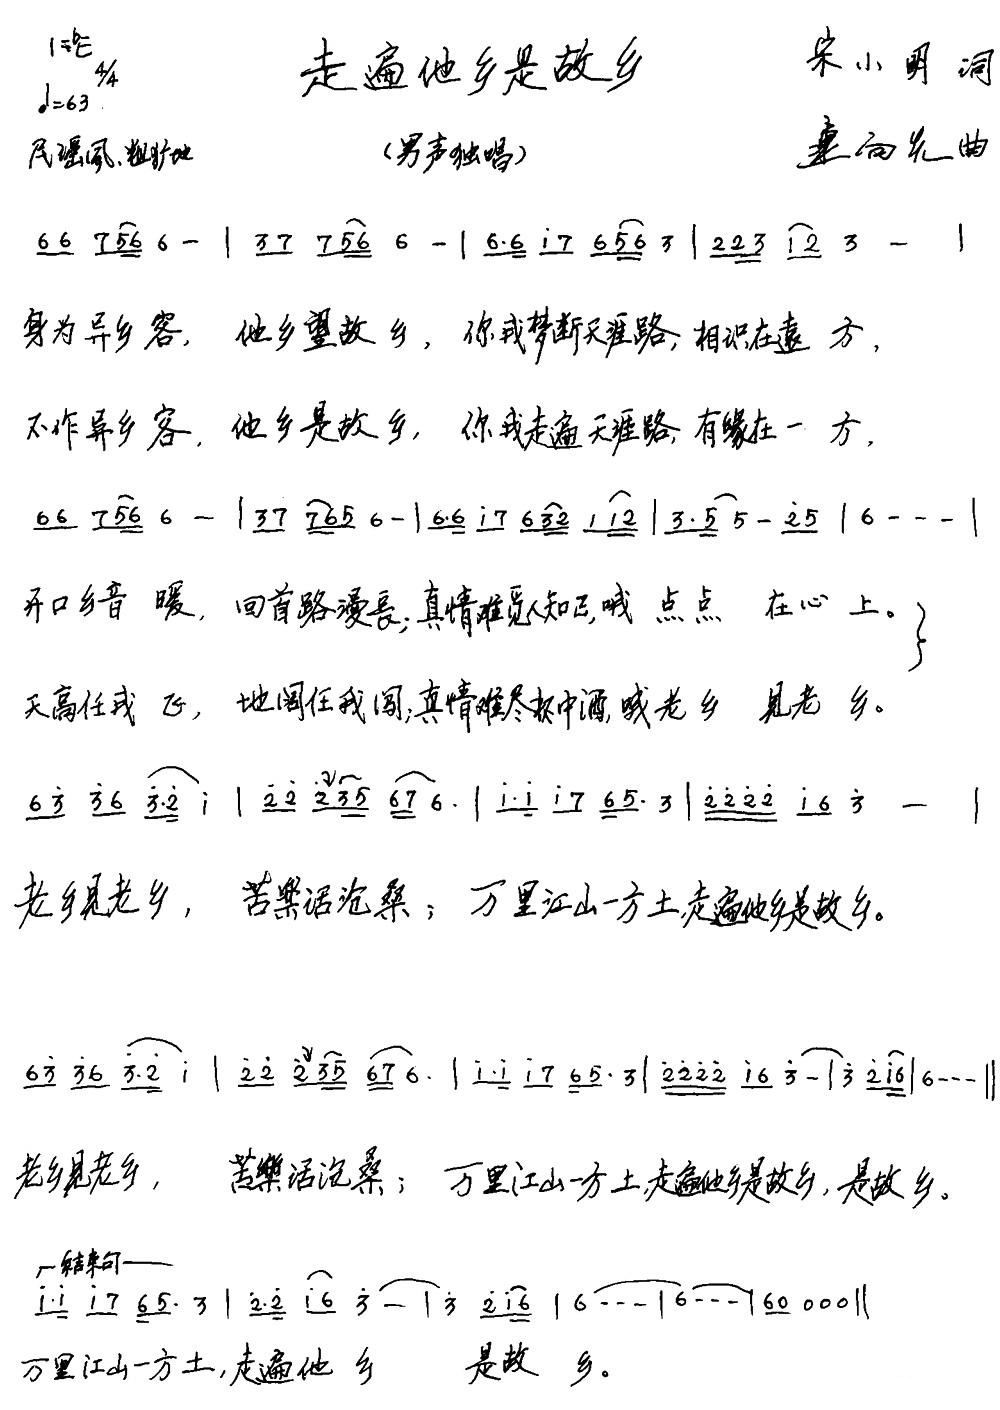 1=bE 4/4
♩=63
走遍他乡是故乡
宋小明 词
民瑶风、粗犷地
(男声独唱)
向光 曲
66 756 6 - | 37 756 6 - | 6·6 i7 656 3 | 223 i2 3 - |
身为异乡客, 他乡望故乡, 你我梦断天涯路; 相识在遠方,
不作异乡客, 他乡是故乡, 你我走遍天涯路; 有缘在一方,
66 756 6 - | 37 765 6 - | 6·6 i7 632 1i2 | 3·5 5 - 25 | 6 - - - |
开口乡音暖, 回首路漫長; 真情难觅人知己, 哦 点点 在心上。
天高任我飞, 地阔任我闯; 真情难尽杯中酒, 哦 老乡 見老乡。
63 36 3·2 i | 22 235 67 6· | i·i i7 65· 3 | 2222 i6 3 - |
老乡見老乡, 苦樂话沧桑; 万里江山一方土, 走遍他乡是故乡。
63 36 3·2 i | 22 235 67 6· | i·i i7 65· 3 | 2222 i6 3 - | 3 2i6 | 6 - - - ||
老乡見老乡, 苦樂话沧桑; 万里江山一方土, 走遍他乡是故乡, 是故乡。
結束句
i·i i7 65· 3 | 2·2 i6 3 - | 3 2i6 | 6 - - - | 6 - - - | 60 000 ||
万里江山一方土, 走遍他乡 是故乡。